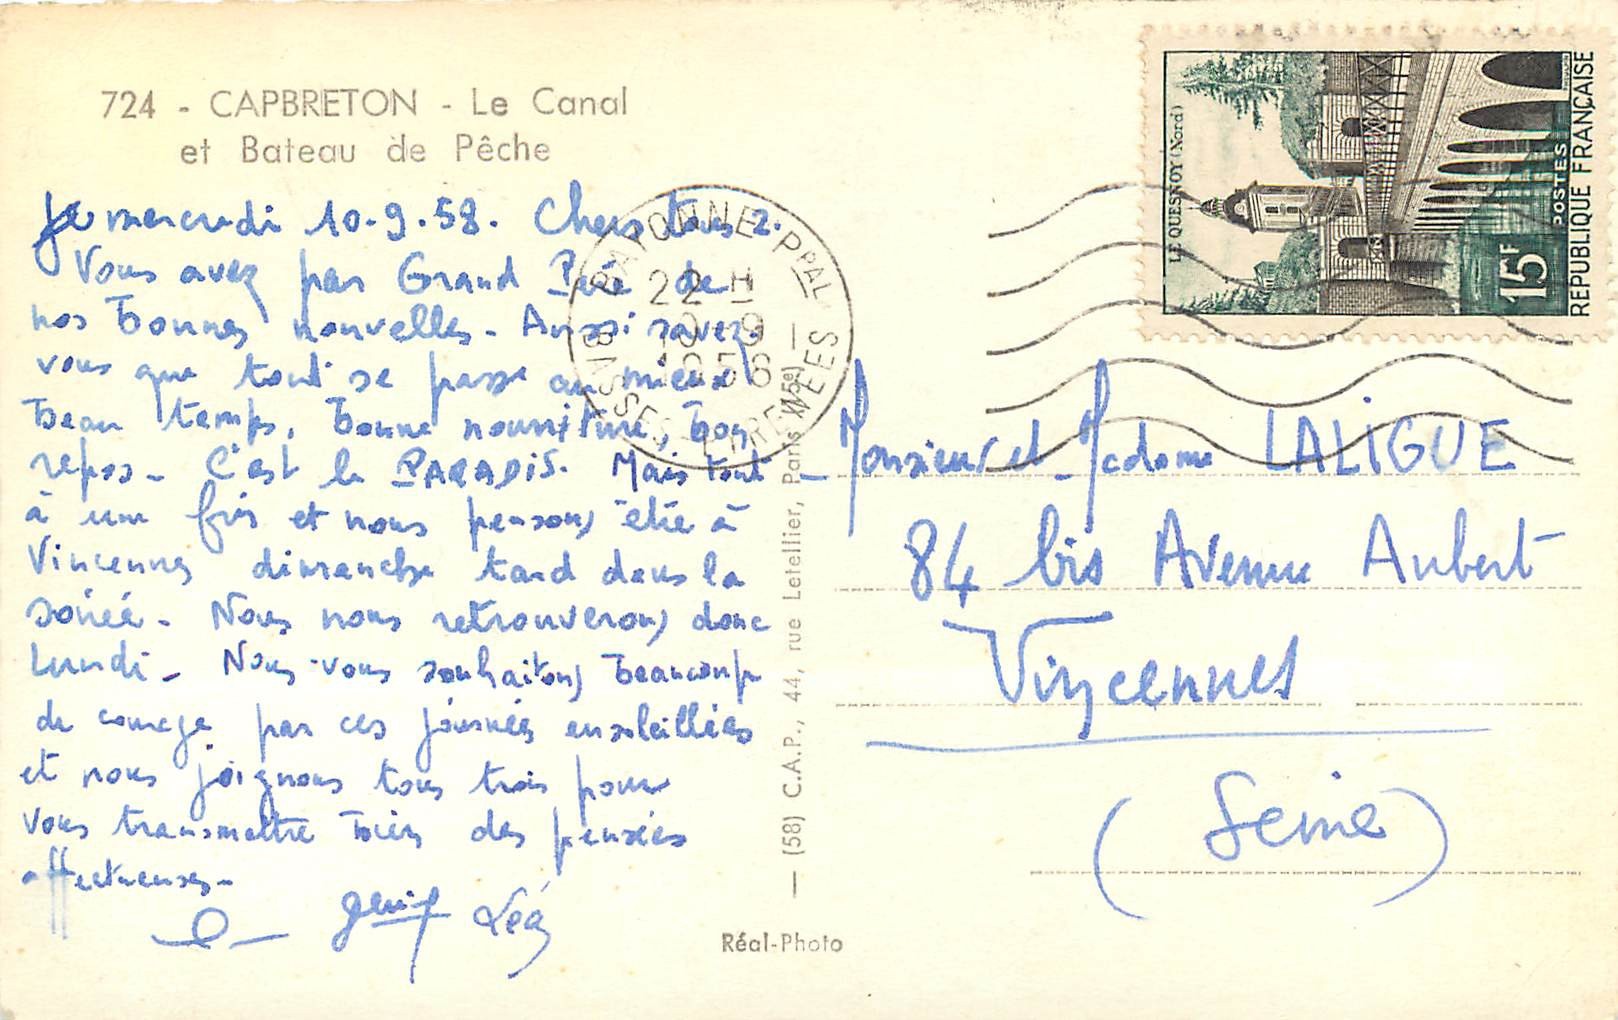 724 - CAPBRETON - Le Canal
et Bateau de Pêche
Le mercredi 10.9.58. Chers tous 2.
Vous avez par Grand Père de
nos bonnes nouvelles - Aussi savez.
vous que tout se passe au mieux
beau temps, bonne nourriture, bon
repos - C'est le PARADIS. Mais tout
à une fin et nous pensons être à
Vincennes dimanche tard dans la
soirée - Nous nous retrouverons donc
lundi - Nous vous souhaitons beaucoup
de courage par ces journées ensoleillées
et nous joignons tous trois pour
vous transmettre bien des pensées
affectueuses -
Léa
BAYONNE PPAL
22 H
9
BASSES PYRENEES
LE QUESNOY (Nord)
15F
POSTES
REPUBLIQUE FRANÇAISE
Monsieur et Madame LALIGUE
84 bis Avenue Aubert
Vincennes
(Seine)
— (58) C.A.P., 44, rue Letellier, Paris (15e)
Réal-Photo